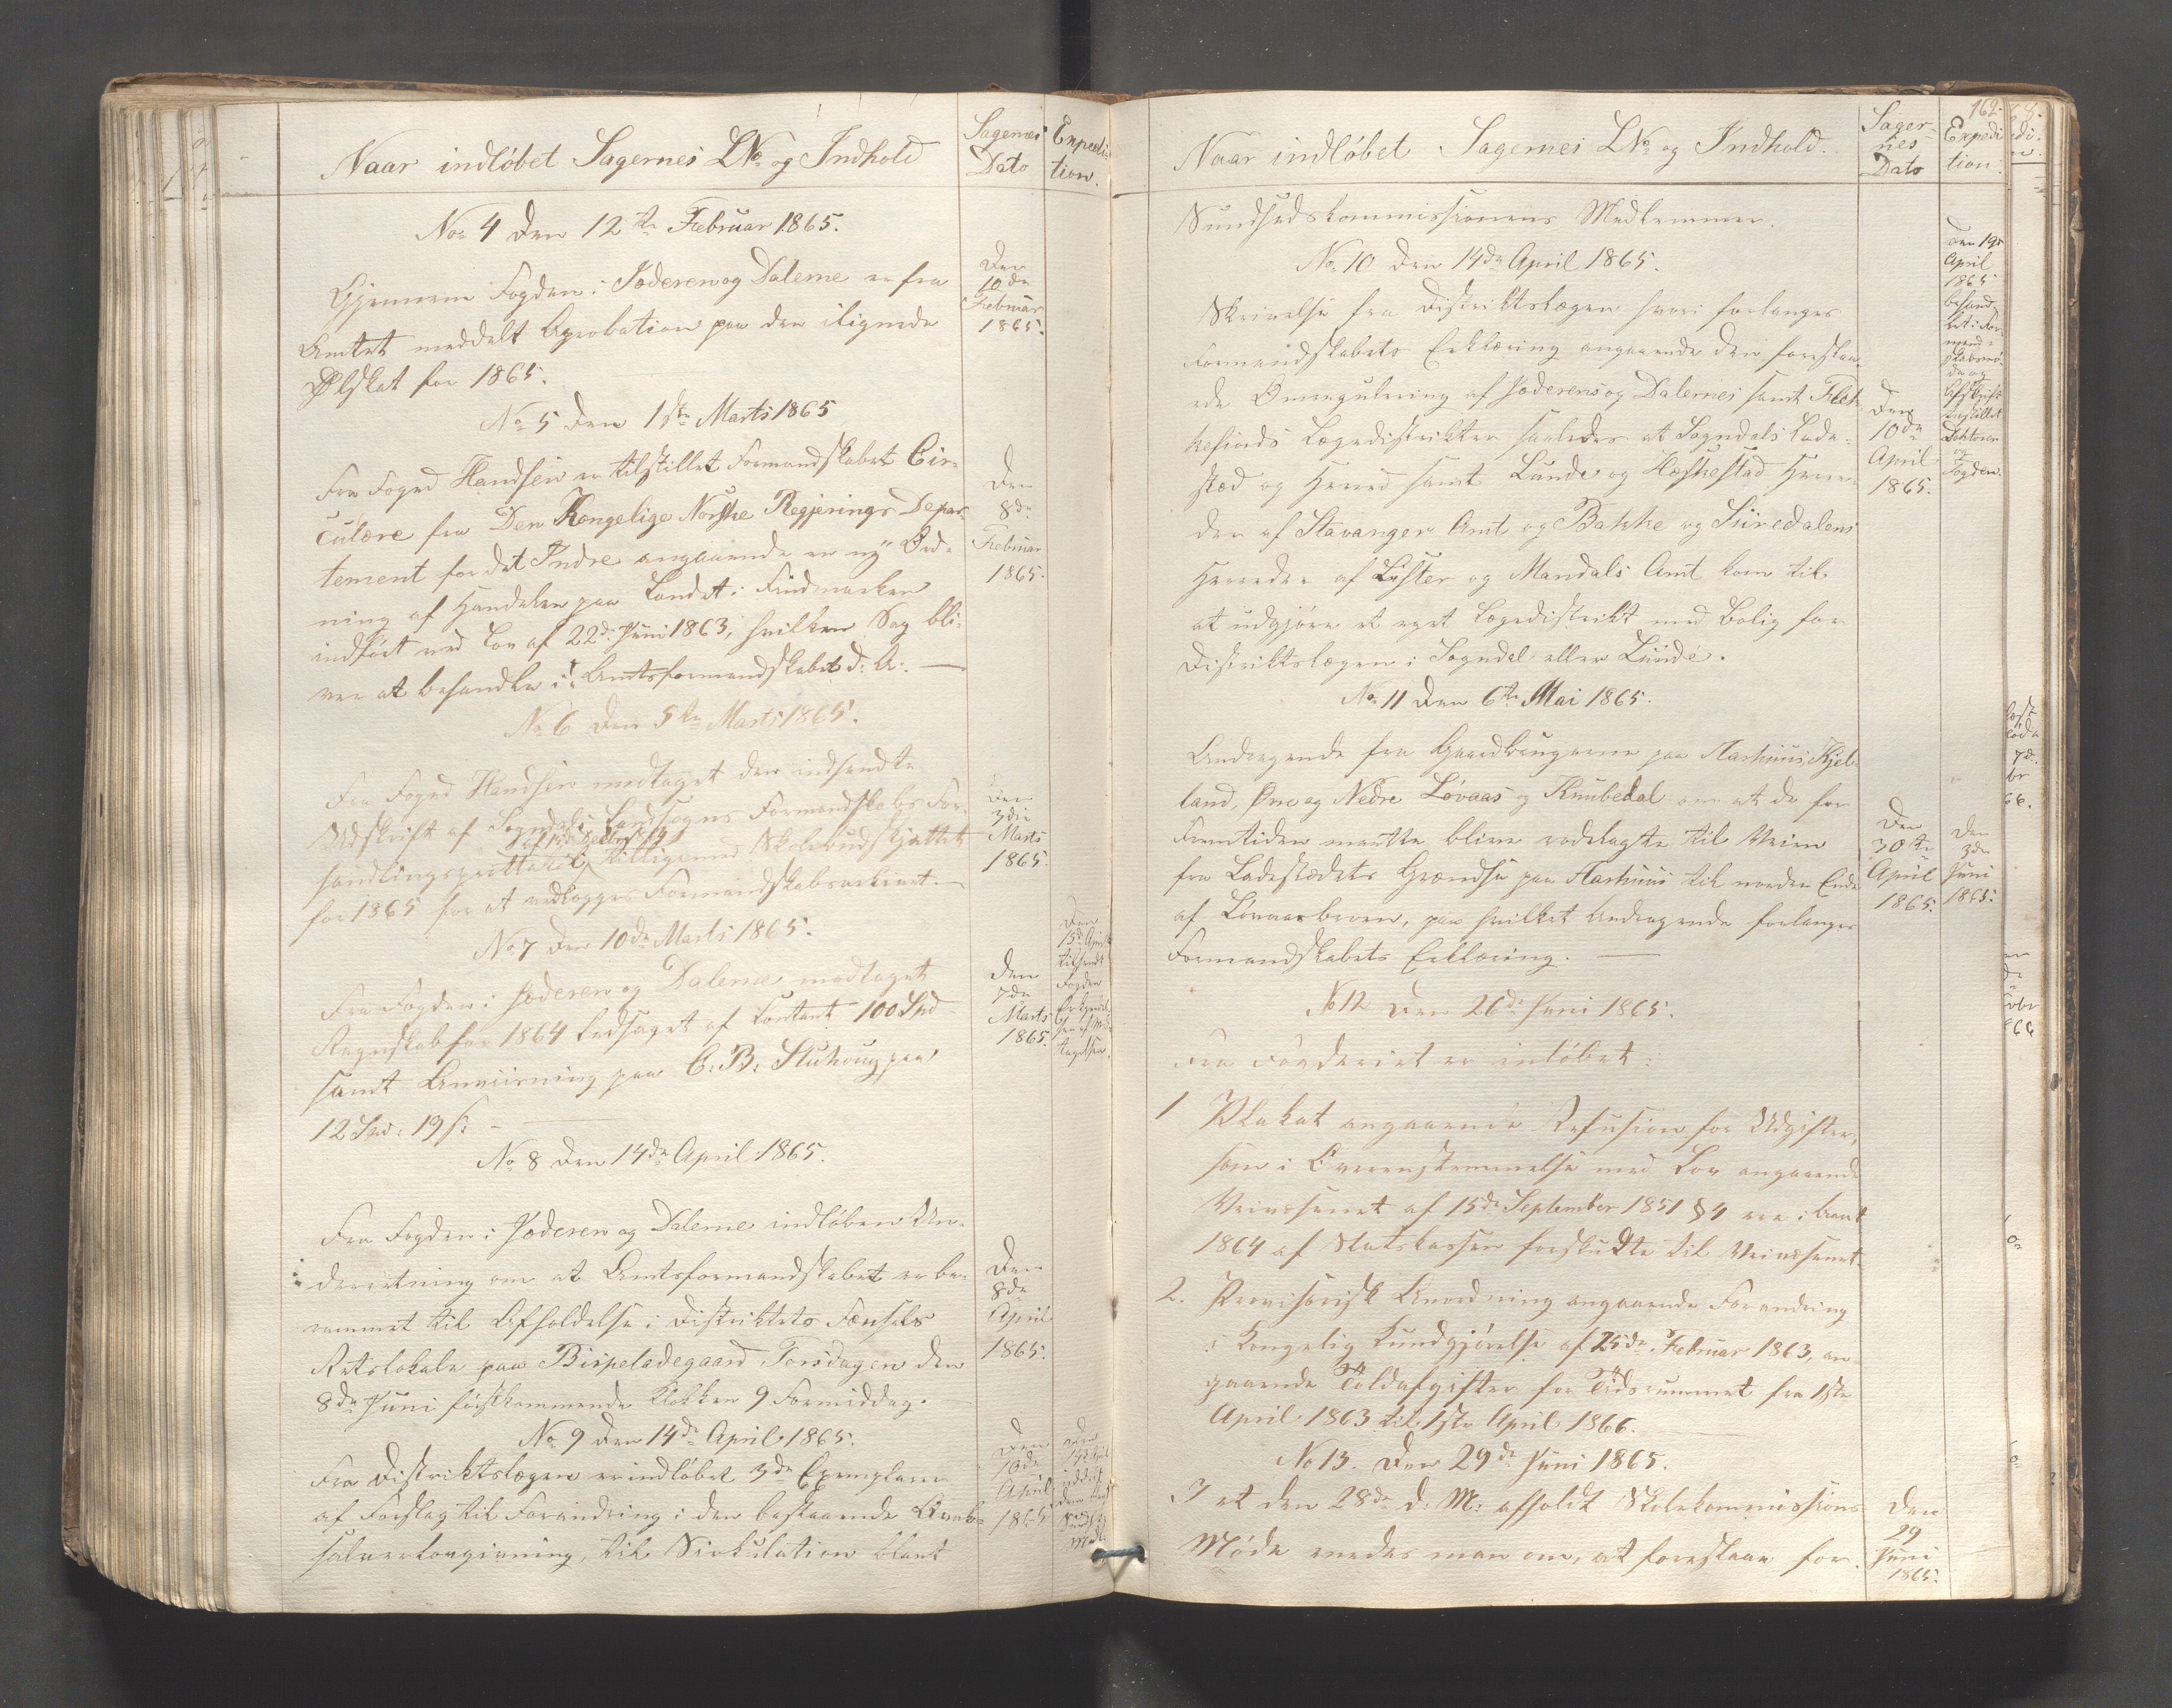 Naar indløbet Sagernes LNo og Indhold
Sagernes Dato
Expedition.
No 4 den 12te Februar 1865.
Gjennem Fogden i Jæderen og Dalerne er fra
Amtet meddelt Aprobation paa den ilignede
Ølskat for 1865.
Den
10de
Februar
1865.
No 5 den 1ste Marts 1865
Fra Foged Handsen er tilstillet Formandskabet Cir-
culære fra Den Kongelige Norske Regjerings Depar-
tement for det Indre angaaende en ny Ord-
ning af Handelen paa Landet i Findmarken
indført ved Lov af 22de Juni 1863, hvilken Sag bli-
ver at behandle i Amtsformandskabet d: A:
Den
8de
Februar
1865.
No 6 den 5te Marts 1865.
Fra Foged Handsen modtaget den indsendte
Udskrift af Sogndals Landsogns Formandskabs For-
handlingsprotted tilligemed Skolebudskjettet
for 1865 for at vedlægges Formandskabsarkivet.
Den
3die
Marts
1865.
No 7 den 10de Marts 1865.
Fra Fogden i Jæderen og Dalerne modtaget
Regnskab for 1864 ledsaget af Contant 100 Spd
samt Anviisning paa C. B. Stuhoug paa
12 Spd: 19 s:
Den
7de
Marts
1865.
Den
15de April
tilsendt
Fogden
No 8 den 14de April 1865.
Fra Fogden i Jæderen og Dalerne indløben Un-
derretning om at Amtsformandskabet er be-
rammet til Afholdelse i Distriktets Fænsels
Retslokale paa Bispeladegaard Torsdagen den
8de Juni førstkommende Klokken 9 Formiddag.
Den
8de
April
1865.
No 9 den 14de April 1865.
Fra Distriktslægen er indløbet 3de Exemplarer
af Forslag til Forandring i den bestaaende Qvak-
salverlovgivning, til Sirkulation blant
Den
10de
April
1865
162
Naar indløbet Sagernes LNo og Indhold.
Sager-
nes
Dato
Expedi
tion:
Sundhedskommissionens Medlemmer.
No 10 den 14de April 1865.
Skrivelse fra Distriktslægen hvori forlanges
Formandskabets Erklæring angaaende den foreslaa-
ede Omregulering af Jæderens og Dalernes samt Flek-
kefjords Lægedistrikter saaledes at Sogndals Lade-
sted og Herred samt Lunde og Heskestad Herre-
der af Stavanger Amt og Bakke og Siredalens
Herreder af Lister og Mandals Amt kom til
at udgjøre et eget Lægedistrikt med Bolig for
Distriktslægen i Sogndal eller Lunde.
Den
10de
April
1865.
den 19de
April
1865
behand
let i For-
mand-
skabsmø-
de og
Afskrift
tilstillet
Doktoren
og
Fogden.
No 11 den 6te Mai 1865.
Andragende fra Gaardbrugerne paa Aarhuus, Kjel-
land, Øvre og Nedre Løvaas og Knubedal om at de for
Fremtiden maatte blive rodelagte til Veien
fra Ladestedets Grændse paa Aarhuus til nordre Ende
af Løvaasbroen, paa hvilket Andragende forlanges
Formandskabets Erklæring.
Den
30te
April
1865.
Den
3de
Juni
1865.
No 12 den 26de Juni 1865.
Fra Fogderiet er inløbet:
1 Plakat angaaende Refusion for Udgifter,
som i Overenstemmelse med Lov angaaende
Veivæsenet af 15de September 1851 § 4 ere i Aaret
1864 af Statskassen forskudte til Veivæsenet.
2. Provisorisk Anordning angaaende Forandring
i Kongelig Kundgjørelse af 25de Februar 1863, an-
gaaende Toldafgifter for Tidsrummet fra 1ste
April 1863 til 1ste April 1866.
No 13. den 29de Juni 1865.
I et den 28de d: M: afholdt Skolekommissions
Møde enedes man om, at foreslaae for
Den
29
Juni
1865.